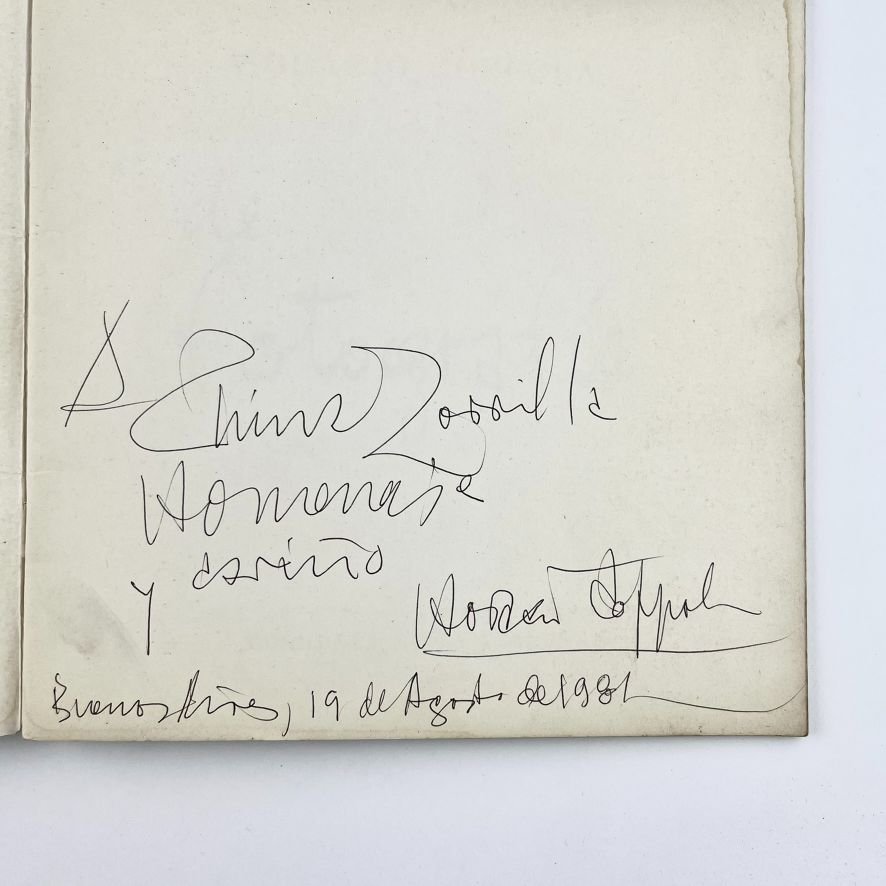 A China Zorrilla
Homenaje
y cariño
Horacio Coppola
Buenos Aires, 19 de Agosto de 1981